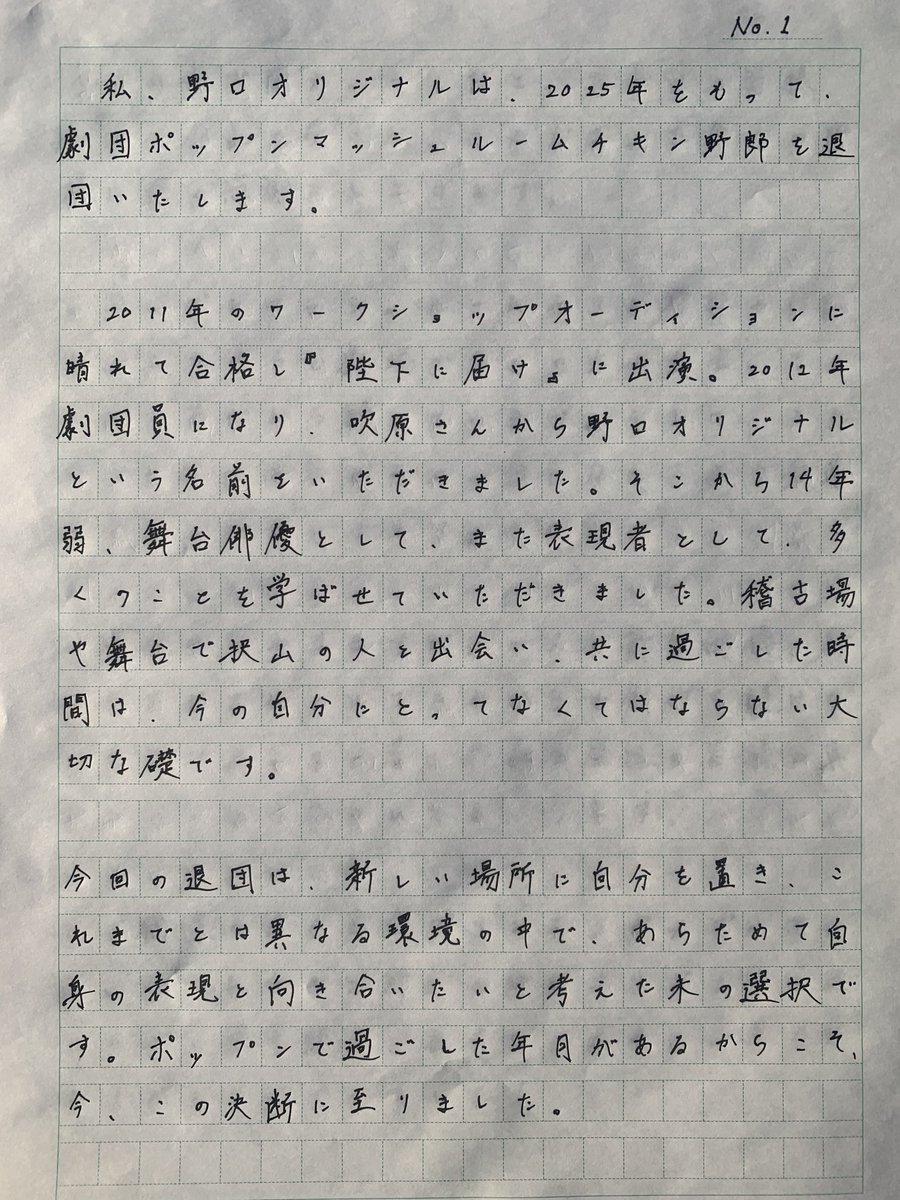 No.1
私、野口オリジナルは、2025年をもって、
劇団ポップンマッシュルームチキン野郎を退
団いたします。
2011年のワークショップオーディションに
晴れて合格し『陛下に届け』に出演。2012年
劇団員になり、吹原さんから野口オリジナル
という名前をいただきました。そこから14年
弱、舞台俳優として、また表現者として、多
くのことを学ばせていただきました。稽古場
や舞台で沢山の人と出会い、共に過ごした時
間は、今の自分にとってなくてはならない大
切な礎です。
今回の退団は、新しい場所に自分を置き、こ
れまでとは異なる環境の中で、あらためて自
身の表現と向き合いたいと考えた末の選択で
す。ポップンで過ごした年月があるからこそ、
今、この決断に至りました。